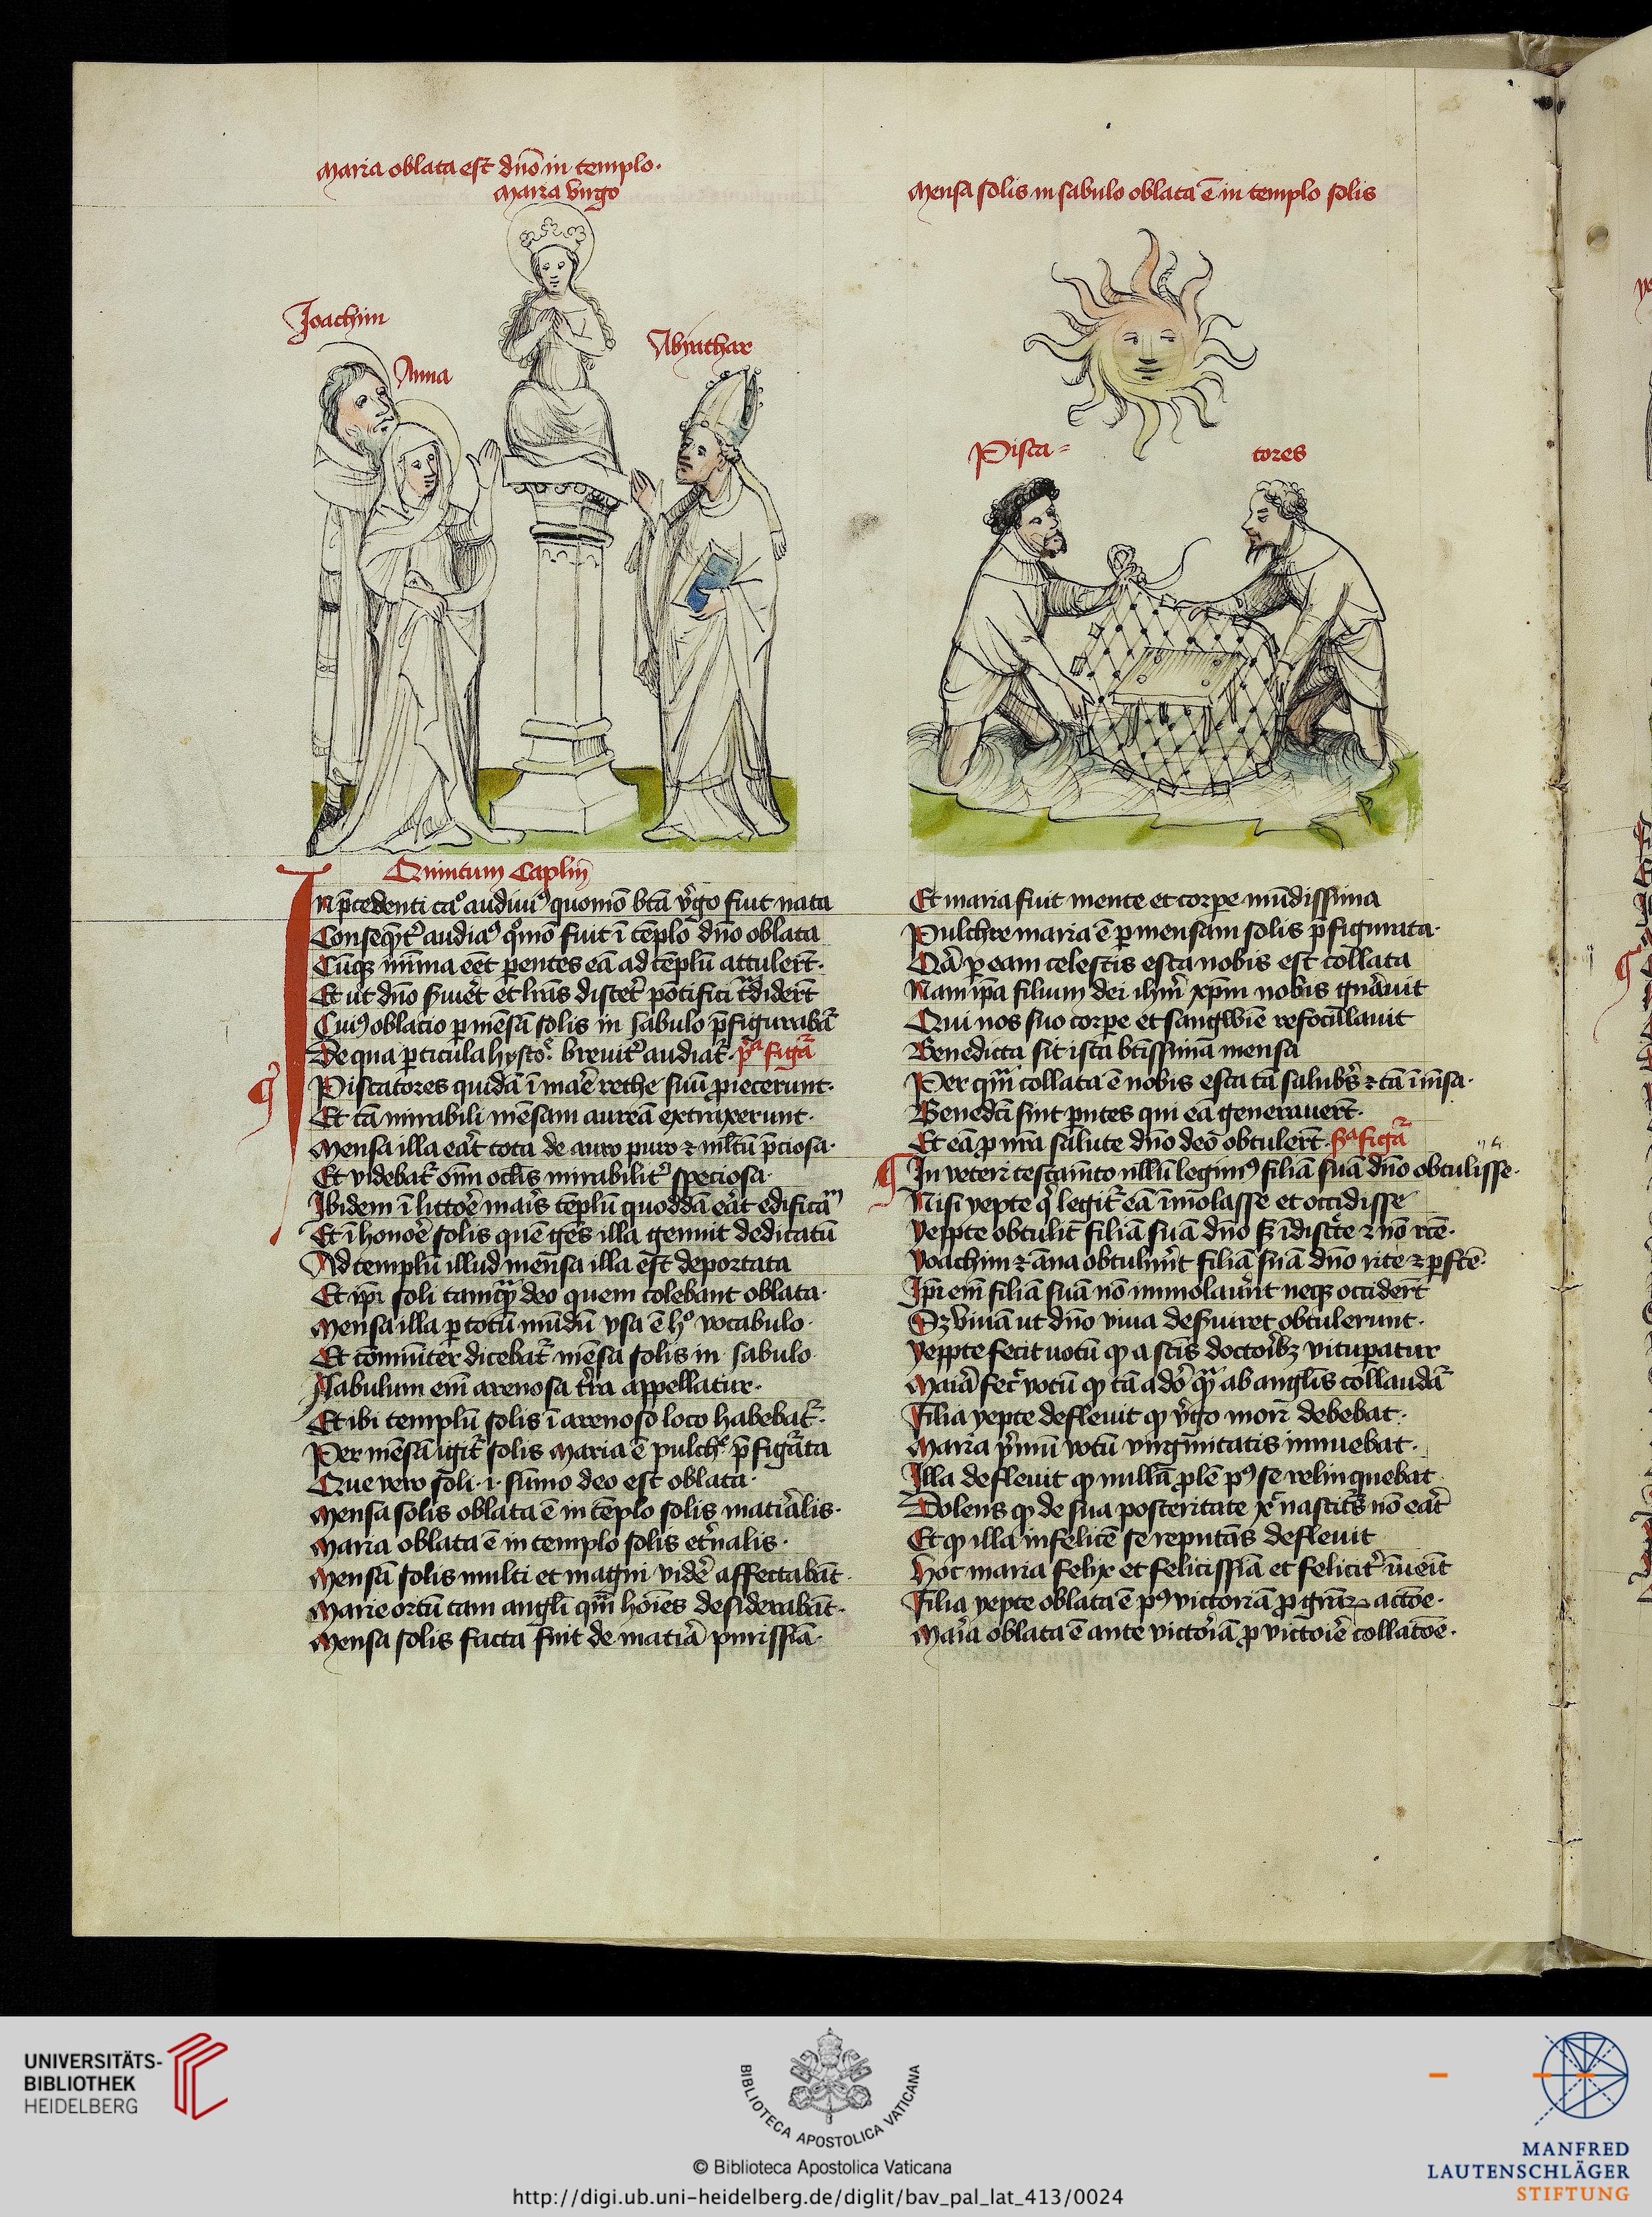 Maria oblata est dn̄o in templo.
Maria virgo
Joachim
Anna
Abyathar
Quintum Caplm̄
In p̄cedenti ca° audiuiꝰ quomō btā v̓go fuit nata
Conseqn̄t̓ audiaꝰ qͦmō fuit ī tēplo dn̄o oblata
Cūqꝫ trima eēt pentes eā ad tēplū attulerūt.
Et ut dn̄o ẜuiēt et lr̄as discēt pōtifici tͣdiderūt
Cuiꝰ oblacio p mēsā solis in sabulo p̄figurabat̓
De qua pticula hystoᵉ. breuit̓ audiat̓. pͣ figā
Piscatores quidā ī ma̓e rethe suū piecerunt.
Et tā mirabili mēsam aureā extraxerunt.
Mensa illa eāt tota de auro puro ⁊ mltū p̄ciosa.
Et videbat̓ oīm oclīs mirabilit̓ speciosa.
Ibidem ī littoe̓ ma̓is tēplū quoddā eāt edificatū
Et ī honoe̓ solis quē gēs illa gemit dedicatū
Ad templū illud mensa illa est deportata
Et ip̄i soli tamqͣ deo quem colebant oblata.
Mensa illa p totū mūdū vsa ē h° vocabulo.
Et cōmunīter dicebat̓ mēsa solis in sabulo
Sabulum eīm arenosa t̓ra appellatur.
Et ibi templū solis ī arenoso loco habebat̓.
Per mēsā igit̓ solis Maria ē pulchᵉ p̄figāta
Que vero soli .i. sūmo deo est oblata.
Mensa solis oblata ē in tēplo solis mat̓ialis.
Maria oblata ē in templo solis et̓nalis.
Mensā solis multi et magni vide̓ affectabāt.
Marie ortū tam angli qͣm hōies desiderabāt.
Mensa solis facta fuit de mat̓ia purissīa.
Mensa solis in sabulo oblata ē in templo solis
Pisca=
tores
Et maria fuit mente et corpe mūdissima
Pulchre maria ē p mensam solis p̄figurata.
Qr̄ p eam celestis esca nobis est collata
Nam ip̄a filium dei ihm̄ xp̄m nobis gnāuit
Qui nos suo corpe et sangwīe refocillauit
Benedicta sit ista btīssima mensa
Per qͣm collata ē nobis esca tā salubꝰ ⁊ tā īm̄sa.
Benedc̄i sint pntes qui eā generauerūt.
Et eā p nr̄a salute dn̄o deo obtulerūt. ẜͣ figā
In veteri testam̄to nllū̄ legimꝰ filiā suā dn̄o obtulisse.
Nisi yepte qͥ legit̓ eā īmolasse et occidisse
Yeppte obtulit filiā suā dn̄o sꝫ īdiscᵉte ⁊ nō rc̄e.
Yoachim ⁊ āna obtulūt filiā suā dn̄o rite ⁊ pfc̄e.
Ip̄i em̄ filiā suā nō immolauūt neqꝫ occidert̄
Sꝫ viuā ut dn̄o viua deẜuiret obtulerunt.
Yeppte fecit uotū qͩ a sc̄is doctoībꝫ vitupatur
Ma̓ia fec̓ votū qͩ tā a do̓ qͣ ab anglīs collaudat̓
Filia yepte defleuit qͩ v̓go mori debebat.
Maria p̓mū votū virginitatis inuebat.
Illa defleuit qͩ nullā plē pꝰ se relinquebat
Dolens qͩ de sua posteritate xᶜ nascitꝰs nō eāt
Et qͩ illa infelicē se reputās defleuit
Hoc maria felix et felicissīa et felicit̓ īueīt
Filia yepte oblata ē pꝰ victoriā p grāꝝ actōe.
Ma̓ia oblata ē ante victo̓iā p victo̓ie collatōe.
UNIVERSITÄTS-
BIBLIOTHEK
HEIDELBERG
BIBLIOTECA APOSTOLICA VATICANA
© Biblioteca Apostolica Vaticana
http://digi.ub.uni-heidelberg.de/diglit/bav_pal_lat_413/0024
MANFRED
LAUTENSCHLÄGER
STIFTUNG